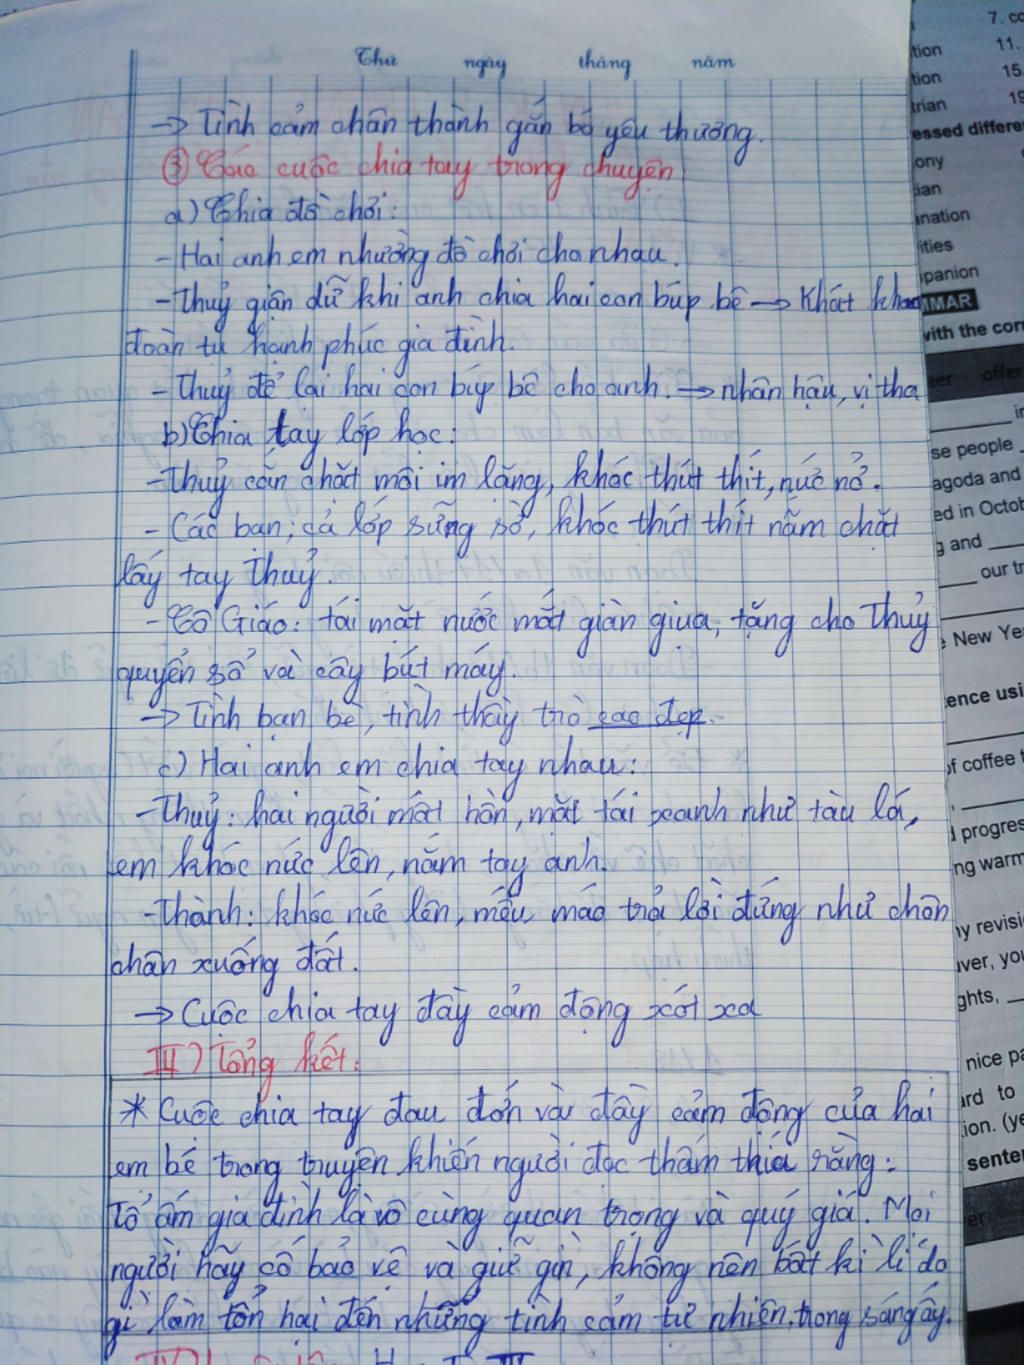 Thứ ngày tháng năm
→ Tình cảm chân thành gắn bó yêu thương.
③ Các cuộc chia tay trong chuyện:
a) Chia đồ chơi:
- Hai anh em nhường đồ chơi cho nhau.
- Thuỷ giận dữ khi anh chia hai con búp bê → Khát khao
đoàn tụ hạnh phúc gia đình.
- Thuỷ để lại hai con búp bê cho anh. → nhân hậu, vị tha
b) Chia tay lớp học:
- Thuỷ cắn chặt môi im lặng, khóc thút thít, nức nở.
- Các bạn; cả lớp sững sờ, khóc thút thít nắm chặt
lấy tay Thuỷ.
- Cô Giáo: tái mặt nước mắt giàn giụa, tặng cho Thuỷ
quyển sổ và cây bút máy.
→ Tình bạn bè, tình thầy trò cao đẹp.
c) Hai anh em chia tay nhau:
- Thuỷ: hai người mất hồn, mặt tái xanh như tàu lá,
em khóc nức lên, nắm tay anh.
- Thành: khóc nức lên, mếu máo trả lời đứng như chôn
chân xuống đất.
→ Cuộc chia tay đầy cảm động xót xa
III) Tổng kết:
* Cuộc chia tay đau đớn và đầy cảm động của hai
em bé trong truyện khiến người đọc thấm thía rằng:
Tổ ấm gia đình là vô cùng quan trọng và quý giá. Mọi
người hãy cố bảo vệ và giữ gìn, không nên bất kì lí do
gì làm tổn hại đến những tình cảm tự nhiên, trong sáng ấy.
7. co
tion 11.
tion 15.
trian 19
essed differe
ony
ian
nation
ities
panion
MMAR
with the corr
offer
in
se people
agoda and
ed in Octob
g and
our tr
New Ye
ence usi
of coffee t
progres
ng warm
y revisi
ver, you
ghts,
nice pa
ard to
ion. (ye
senter